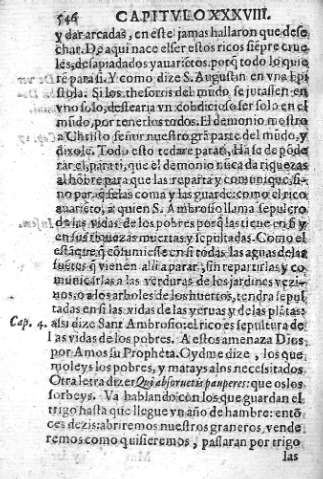 546 CAPITVLO XXXVIII.
y dar arcadas, en este jamas hallaron que dese
char. De aqui nace el ser estos ricos siẽpre crue
les, desapiadados y auariẽtos, porq̃ todo lo quiẽ
rẽ para si. Y como dize S. Augustin en vna Epi
stola. Si los thesoros del mũdo se jũtassen en
vno solo, dessearia vn cobdicioso ser solo en el
mũdo, por tenerlos todos. El demonio mostro
a Christo señor nuestro grã parte del mũdo, y
dixole. Todo esto te dare para ti. Ha se de põde
rar el, para ti, que el demonio nũca da riquezas
al hõbre para que las reparta y comunique, si-
no para q̃ se las coma y las guarde: como el rico
auariẽto, a quien S. Ambrosio llama sepulcro
de las vidas de los pobres porq̃ las tiene en si y
en sus riquezas muertas y sepultadas. Como el
estãque q̃ consumiesse en si todas las aguas de las
fuẽtes q̃ vienen alli a parar, sin repartirlas y co-
municarlas a las verduras de los jardines vezi-
nos, o a los arboles de los huertos, tendra sepul
tadas en si las vidas de las yeruas y de las plãtas:
Cap. 4. assi dize Sant Ambrosio: el rico es sepultura de
las vidas de los pobres. A estos amenaza Dios
por Amos su Propheta. Oydme dize, los que
moleys los pobres, y matays a los necessitados.
Otra letra dize: Qui absorbetis pauperes: que os los
sorbeys. Va hablando con los que guardan el
trigo hasta que llegue vn año de hambre: entõ
ces dezis: abriremos nuestros graneros, vende
remos como quisieremos, passaran por trigo
las